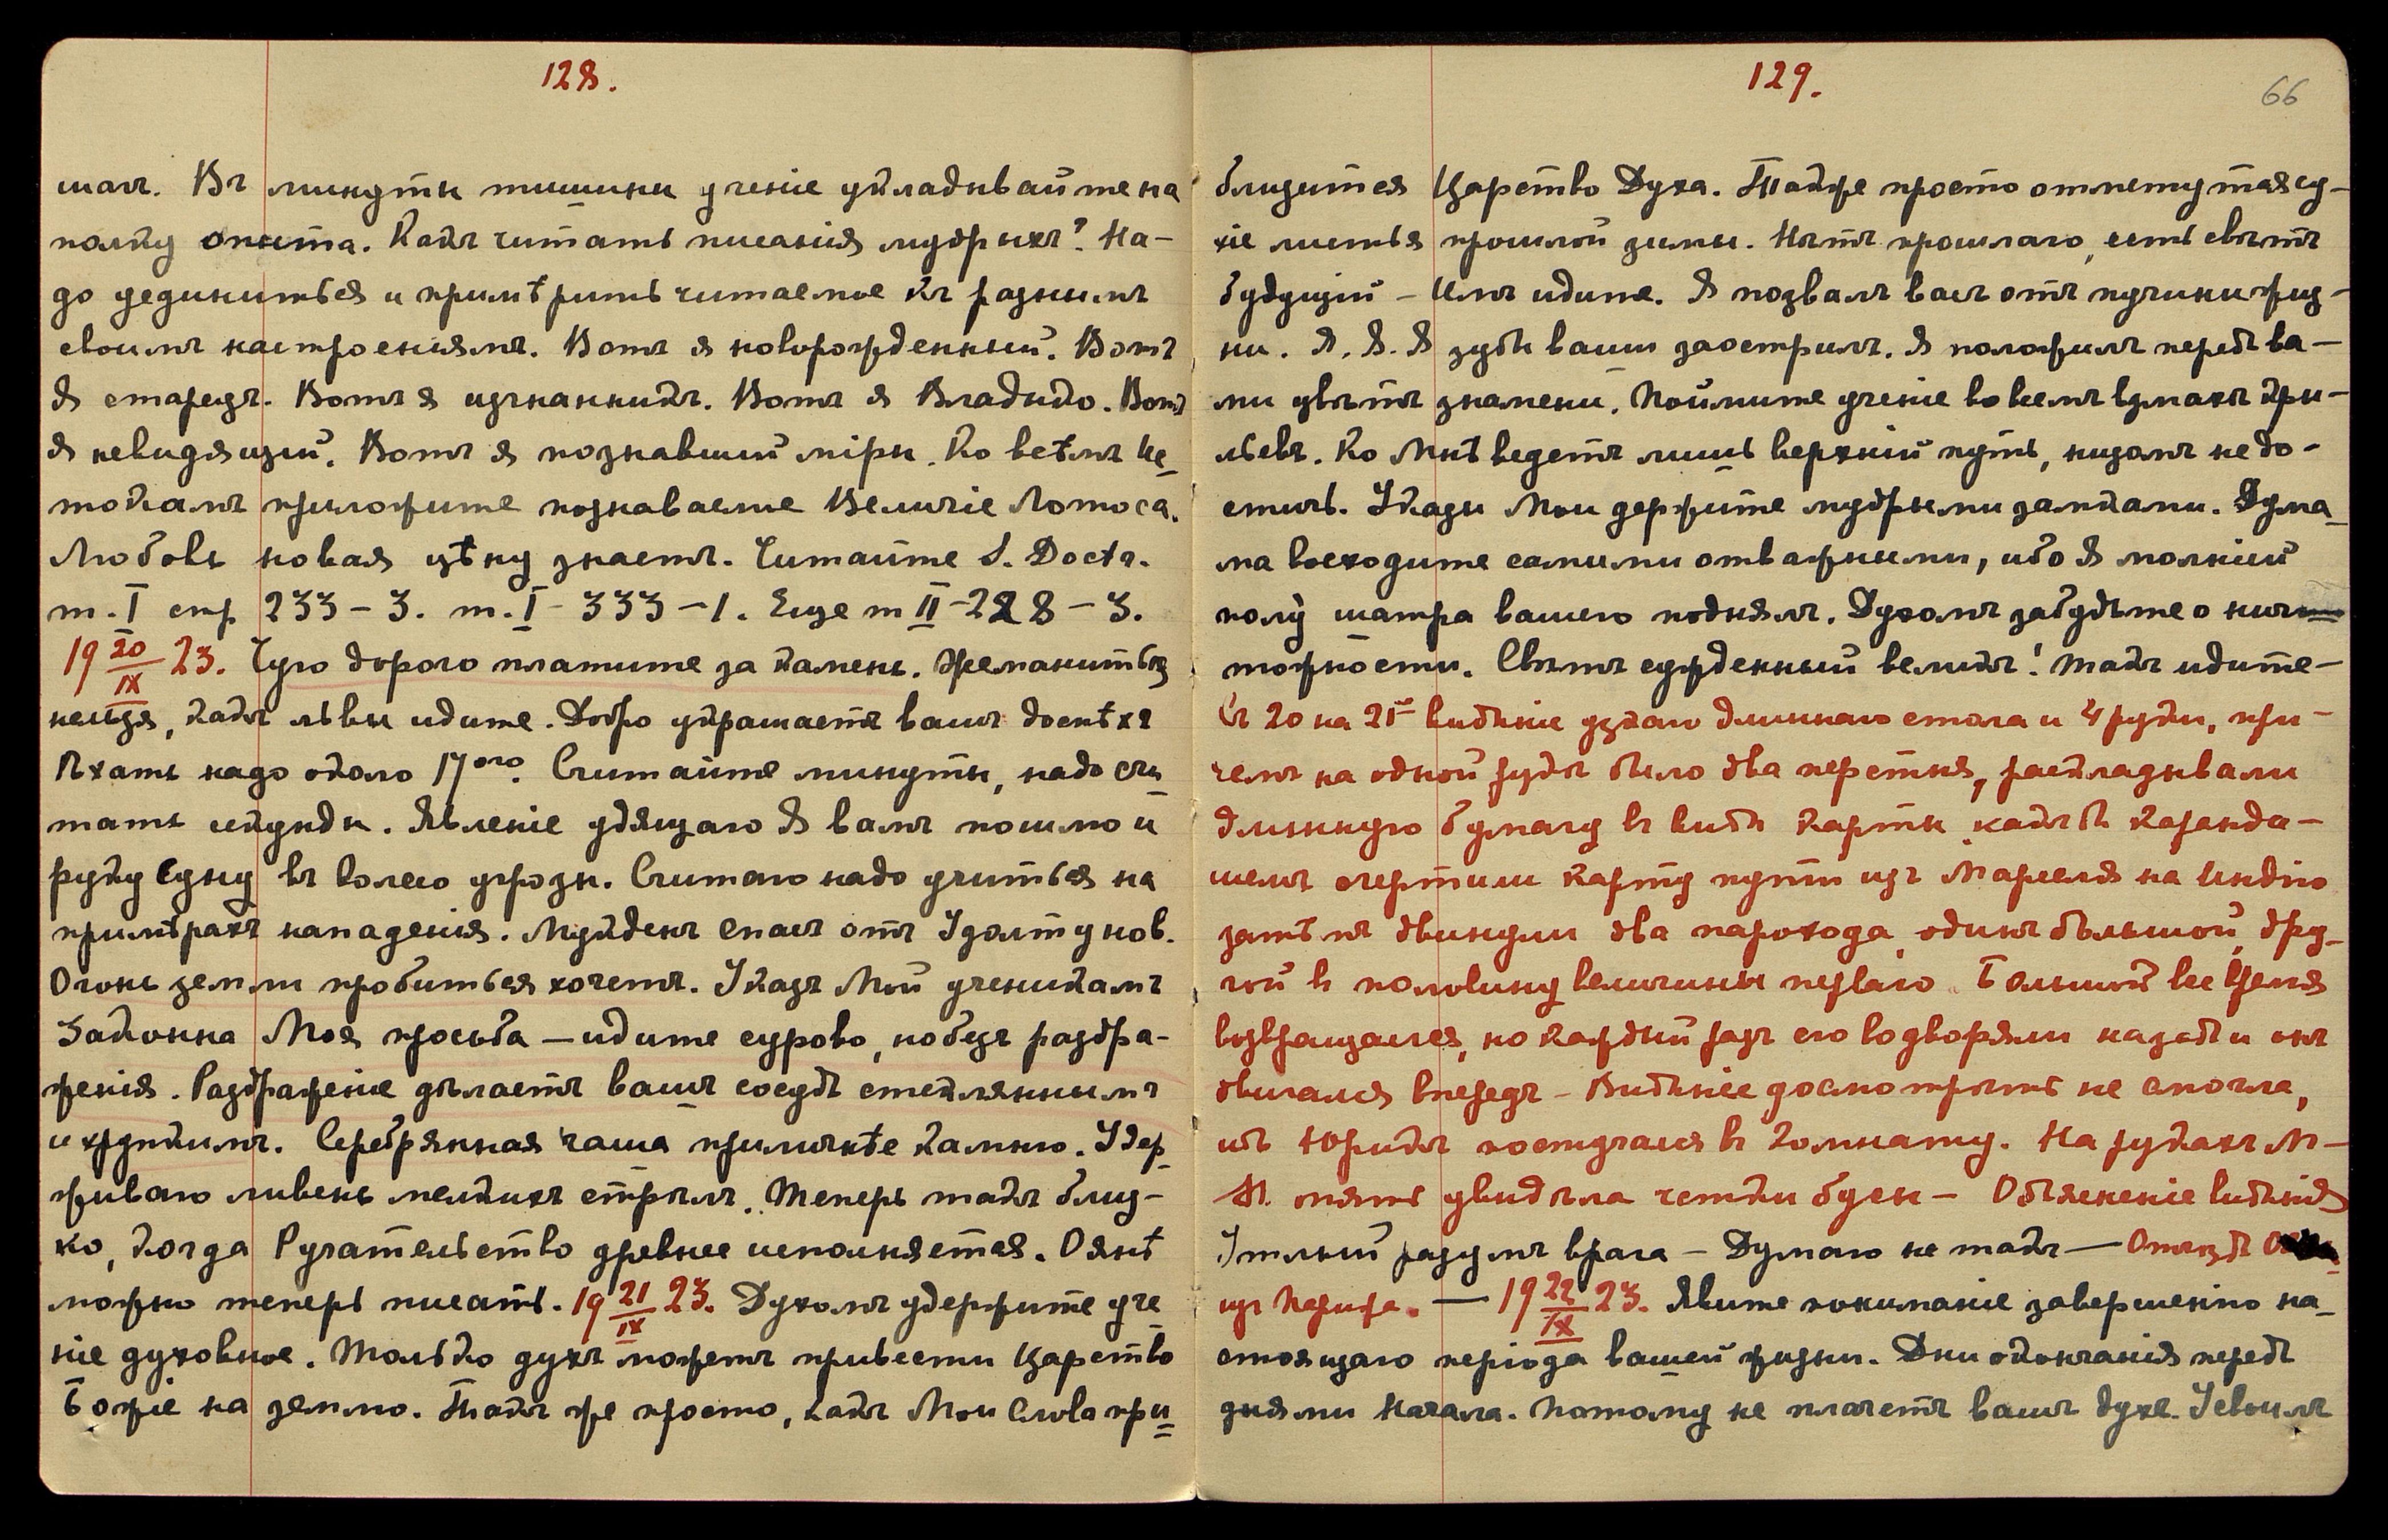 128.
шаг. Въ минуты тишины ученіе укладывайте на
полку опыта. Какъ читать писанія мудрыхъ? На-
до уединиться и примѣрить читаемое къ разнымъ
своимъ настроеніямъ. Вотъ я новорожденный. Вотъ
Я старецъ. Вотъ я изгнанникъ. Вотъ я Владыко. Вотъ
я невидящій. Вотъ я познавшій міры. Ко всѣмъ Ис-
токамъ приложите познаваемое Величіе Лотоса.
Любовь новая цѣну знаетъ. Читайте S. Doctr.
т. I стр 233 – 3. т. I – 333 – 1. Еще т II – 288 – 3.
19 20/IX 23. Чую дорого платите за камень. Жеманиться
нельзя, какъ львы идите. Добро украшаетъ вашъ доспѣхъ
Ѣхать надо около 17ого. Считайте минуты, надо счи-
тать секунды. Явленіе удящаго Я вамъ пошлю и
руку суну въ колесо угрозы. Считаю надо учиться на
примѣрахъ нападенія. Мукденъ спасъ отъ Уды
Огонь земли пробиться хочетъ. Указъ Мой ученикамъ
Закона Моя просьба — идите сурово, но безъ раздра-
женія. Раздраженіе дѣлаетъ вашъ сосудъ стекляннымъ
и хрупкимъ. Серебрянная чаша приличнѣе камню. Удер-
живаю ливень мелкихъ стрѣлъ. Теперь такъ близ-
ко, когда Ручательство древнее исполняется. Оянѣ
можно теперь писать. 19 21/IX 23. Духомъ удержите уче-
ніе духовное. Только духъ можетъ привести Царство
Божіе на землю. Такъ же просто, какъ Мои слова при-
129.
66
близится Царство Духа. Также просто отметутся су-
хіе листья прошлой зимы. Нѣтъ прошлаго, есть свѣтъ
будущій – Имъ идите. Я позвалъ васъ отъ пучины жиз-
ни. Я. Я. Я зубы ваши заострилъ. Я положилъ передъ ва-
ми цвѣтъ знамени. Поймите ученіе во всемъ взмахѣ кры-
льевъ. Ко Мнѣ ведетъ лишь верхній путь, низомъ не до-
стичь. Указы Мои держите мудрыми замками. Дума-
ма восходите самыми отважными, ибо Я молніей
полу шатра вашего поднялъ. Духомъ забудьте о нич
тожности. Свѣтъ сужденный великъ! Такъ идите –
Съ 20 на 21е видѣніе узкаго длиннаго стола и 4 руки, при-
чемъ на одной рукѣ было два перстня, раскладывали
длинную бумагу въ видѣ карты какъ бы каранда-
шемъ очертили карту пути изъ Марселя на Индію
затѣмъ двинули два парохода одинъ большой, дру-
гой въ половину величины перваго. Большой все время
возвращался, но каждый разъ его водворяли назадъ и онъ
двигался впередъ – Видѣніе досмотрѣть не смогла,
ибо Юрикъ постучался въ комнату. На рукахъ М –
М. опять увидѣла четки бусы – Объясненіе видѣнія
Утлый разумъ врага – Думаю не такъ — Отъѣздъ
изъ Парижа. — 19 22/IX 23. Явите пониманіе завершенію на-
стоящаго періода вашей жизни. Дни окончанія передъ
днями Начала. Потому не плачетъ вашъ духъ. Усвоилъ